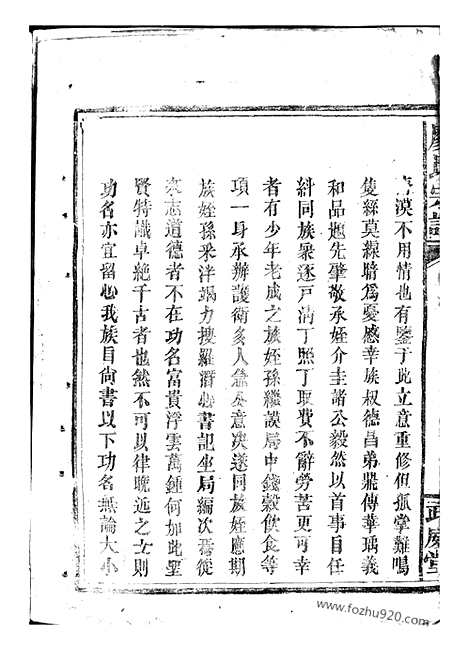 漠不用情也有鑒于此立意重修但孤掌難鳴
隻絲莫線時為憂感幸族叔德昌弟鼎傳華瑀義
和品題先肇敬承姪介圭諸公毅然以首事目任
糾同族眾逐戶清丁照丁取費不辭勞苦更可幸
者有少年老成之族姪孫繼謨局中錢穀飲食等
項一身承辦護衛多人意決遂同族姪應期
族姪孫采泮竭力搜羅潛心書記坐局編次
志道德者不在功名富貴浮雲萬鍾何如此聖
賢特識卓絶千古者也然不可以律晚近之士則
功名亦宜留心我族自尚書以下功名無論大小
慶堂
www.fozhu920.com